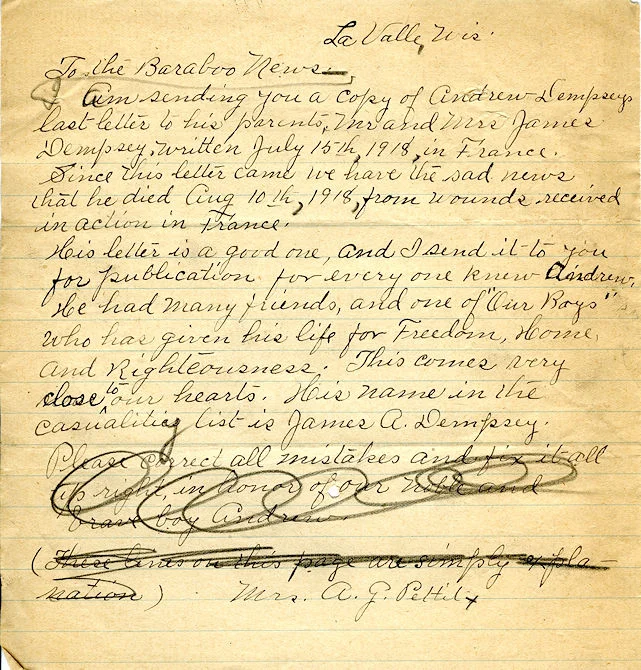 La Valle, Wis.
To the Baraboo News—,
Am sending you a copy of Andrew Dempseys
last letter to his parents, Mr and Mrs James
Dempsey, written July 15th, 1918, in France.
Since this letter came we have the sad news
that he died Aug 10th, 1918, from wounds received
in action in France.
His letter is a good one, and I send it to you
for publication for every one knew Andrew.
He had many friends, and one of "Our Boys"
who has given his life for Freedom, Home,
and Righteousness. This comes very
close to our hearts. His name in the
casualities list is James A. Dempsey.
Please correct all mistakes and fix it all
up right, in honor of our noble and
brave boy Andrew.
(These lines on this page are simply expla-
nation) Mrs. A. G. Pettit